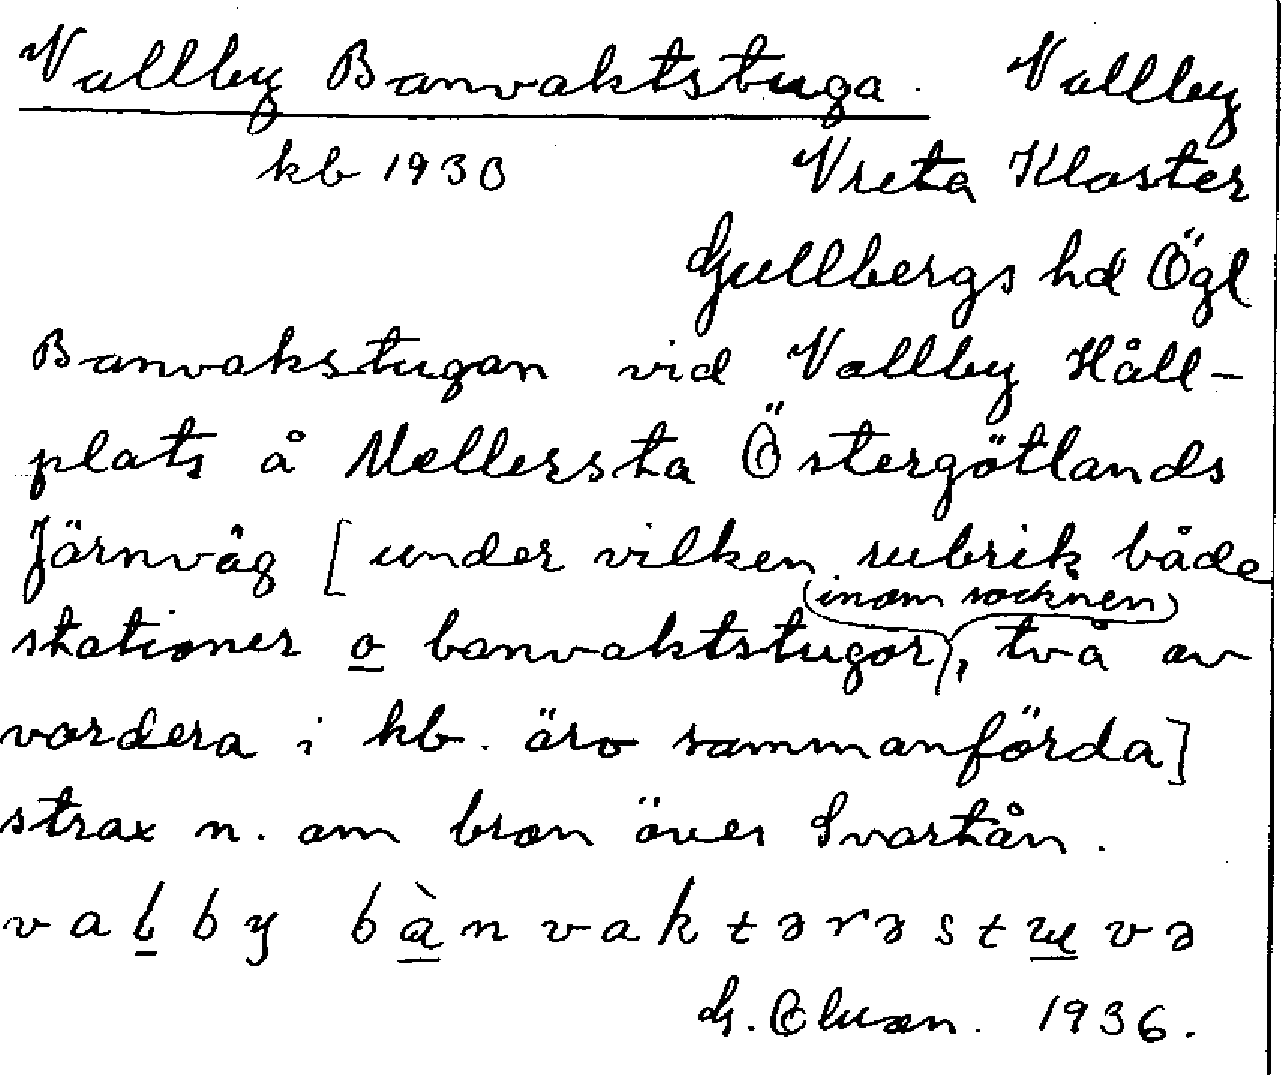 Vallby Banvaktstuga. Vallby
kb 1930 Vreta Kloster
Gullbergs hd Ögl
Banvakstugan vid Vallby Håll-
plats å Mellersta Östergötlands
Järnväg [under vilken rubrik både
(inom socknen)
stationer o banvaktstugor, två av
vardera i kb. äro sammanförda]
strax n. om bron över Svartån.
valby bànvaktərəstuvə
G. 1936.